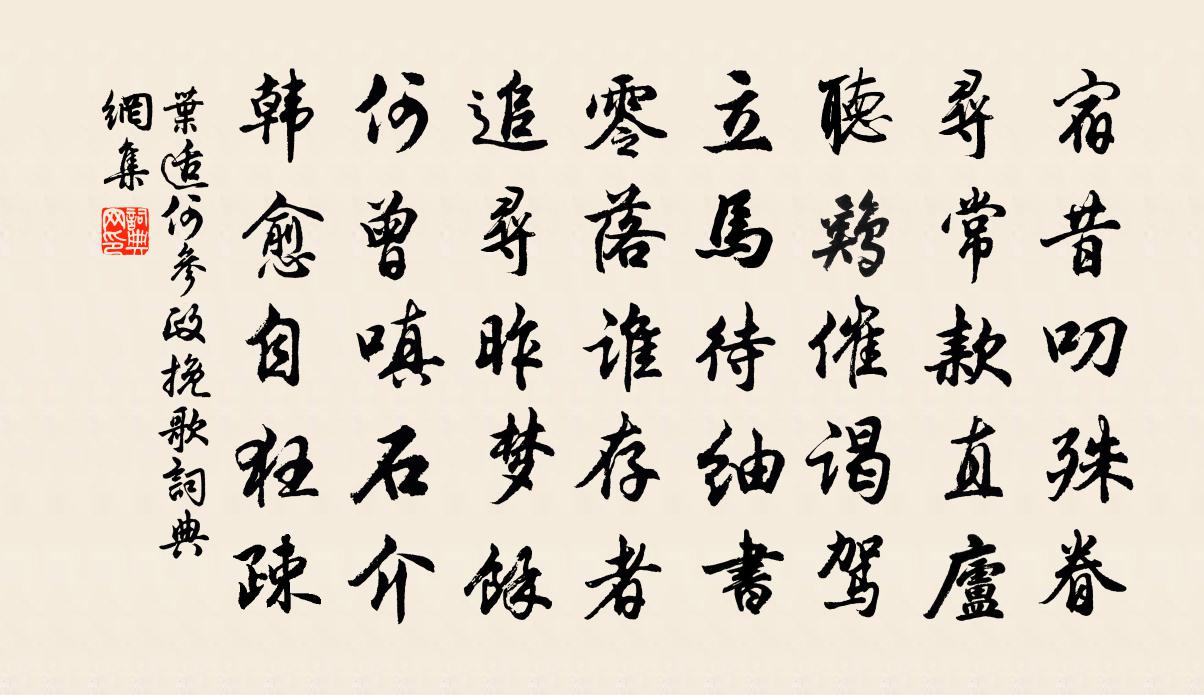 宿昔叨殊眷
尋常款直廬
聽鷄催谒驾
立馬待紬書
零落谁存者
追尋昨梦餘
何曾嗔石介
韩愈自狂疎
葉适何參政挽歌詞典
網集
詞典网印